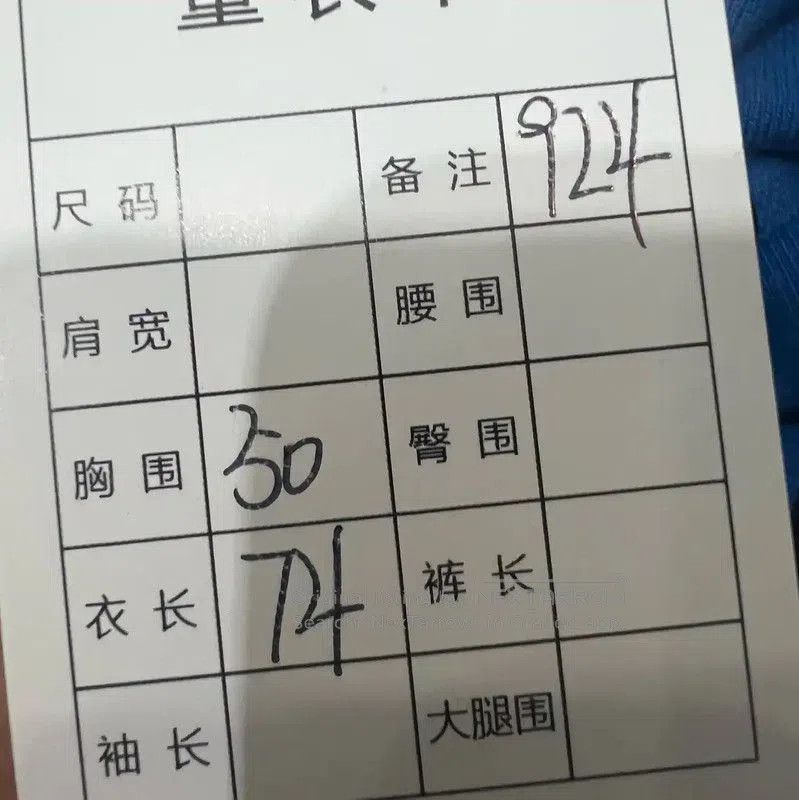 尺码 备注 924
肩宽 腰围
胸围 50 臀围
衣长 74 裤长
袖长 大腿围